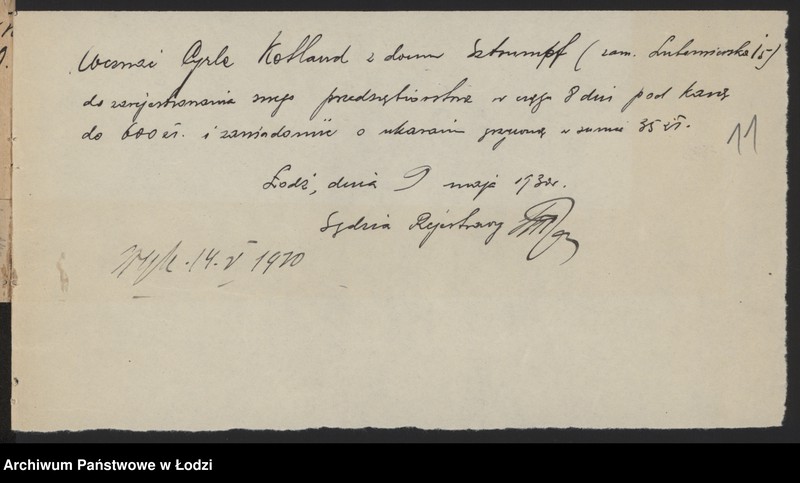 Wezwać Cyrlę Kotland z domu Sztrumpf (zam. Lutomierska 15)
do zarejestrowania swego przedsiębiorstwa w ciągu 8 dni pod karą
do 600 zł. i zawiadomić o ukaraniu grzywną w sumie 35 zł.
11
Łódź, dnia 9 maja 1930r.
Sędzia Rejestrowy
Wyk. 14. V 1930
Archiwum Państwowe w Łodzi